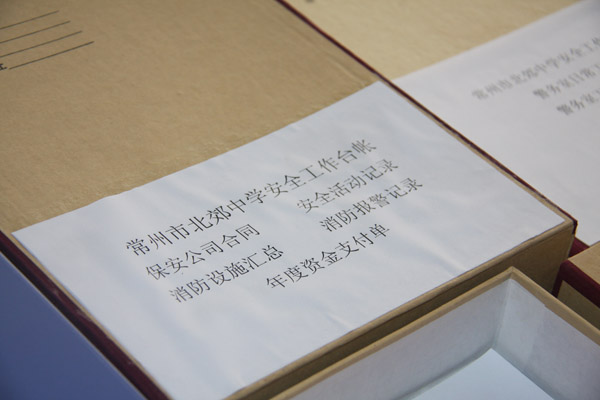 常州市北郊中学安全工作台帐
保安公司合同 安全活动记录
消防设施汇总 消防报警记录
年度资金支付单
常州市北郊中学安全工作
警务室日常
警务室